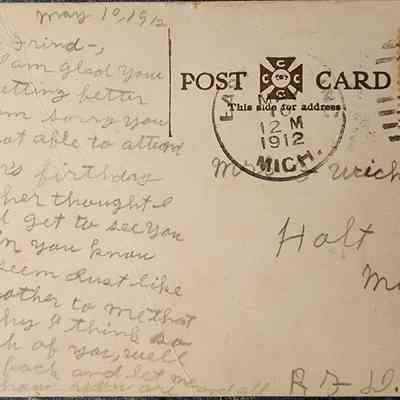 May 10, 1912
Frind-,
am glad you
etting better
m sorry you
not able to attend
rs birthday
her thought I
d get to see you
n you know
seem dust like
other to me that
hy I think so
h of you, well
back and let me
how you are and all
POST CARD
This side for address
MICH.
12 M
1912
Holt
R. F. D.